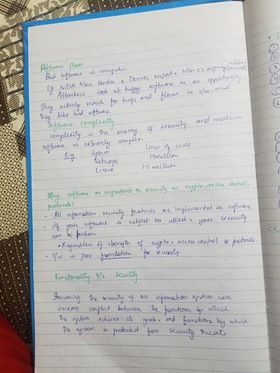 Software Flaws
Bad software is everywhere
Eg. NASA Mars Lander, Denver airport, MV-22 Osprey
Attackers look at buggy software as an opportunity
They actively search for bugs and flaws in s/w, and
they like bad software.
Software complexity
Complexity is the enemy of security and modern
software is extremely complex.
Eg. System Lines of code
Netscape 17 million
Linux 1.5 million
Why software as important to security as crypto, access control,
protocols?
- All information security features are implemented in software
- If your software is subject to attack, your security
can be broken
• Regardless of strength of crypto, access control or protocols
- S/w is poor foundation for security
Functionality v/s Security
Ensuring the security of an information system
conflict between the functions by which
the system achieves its goals, and functions by which
the system is protected from security threats.